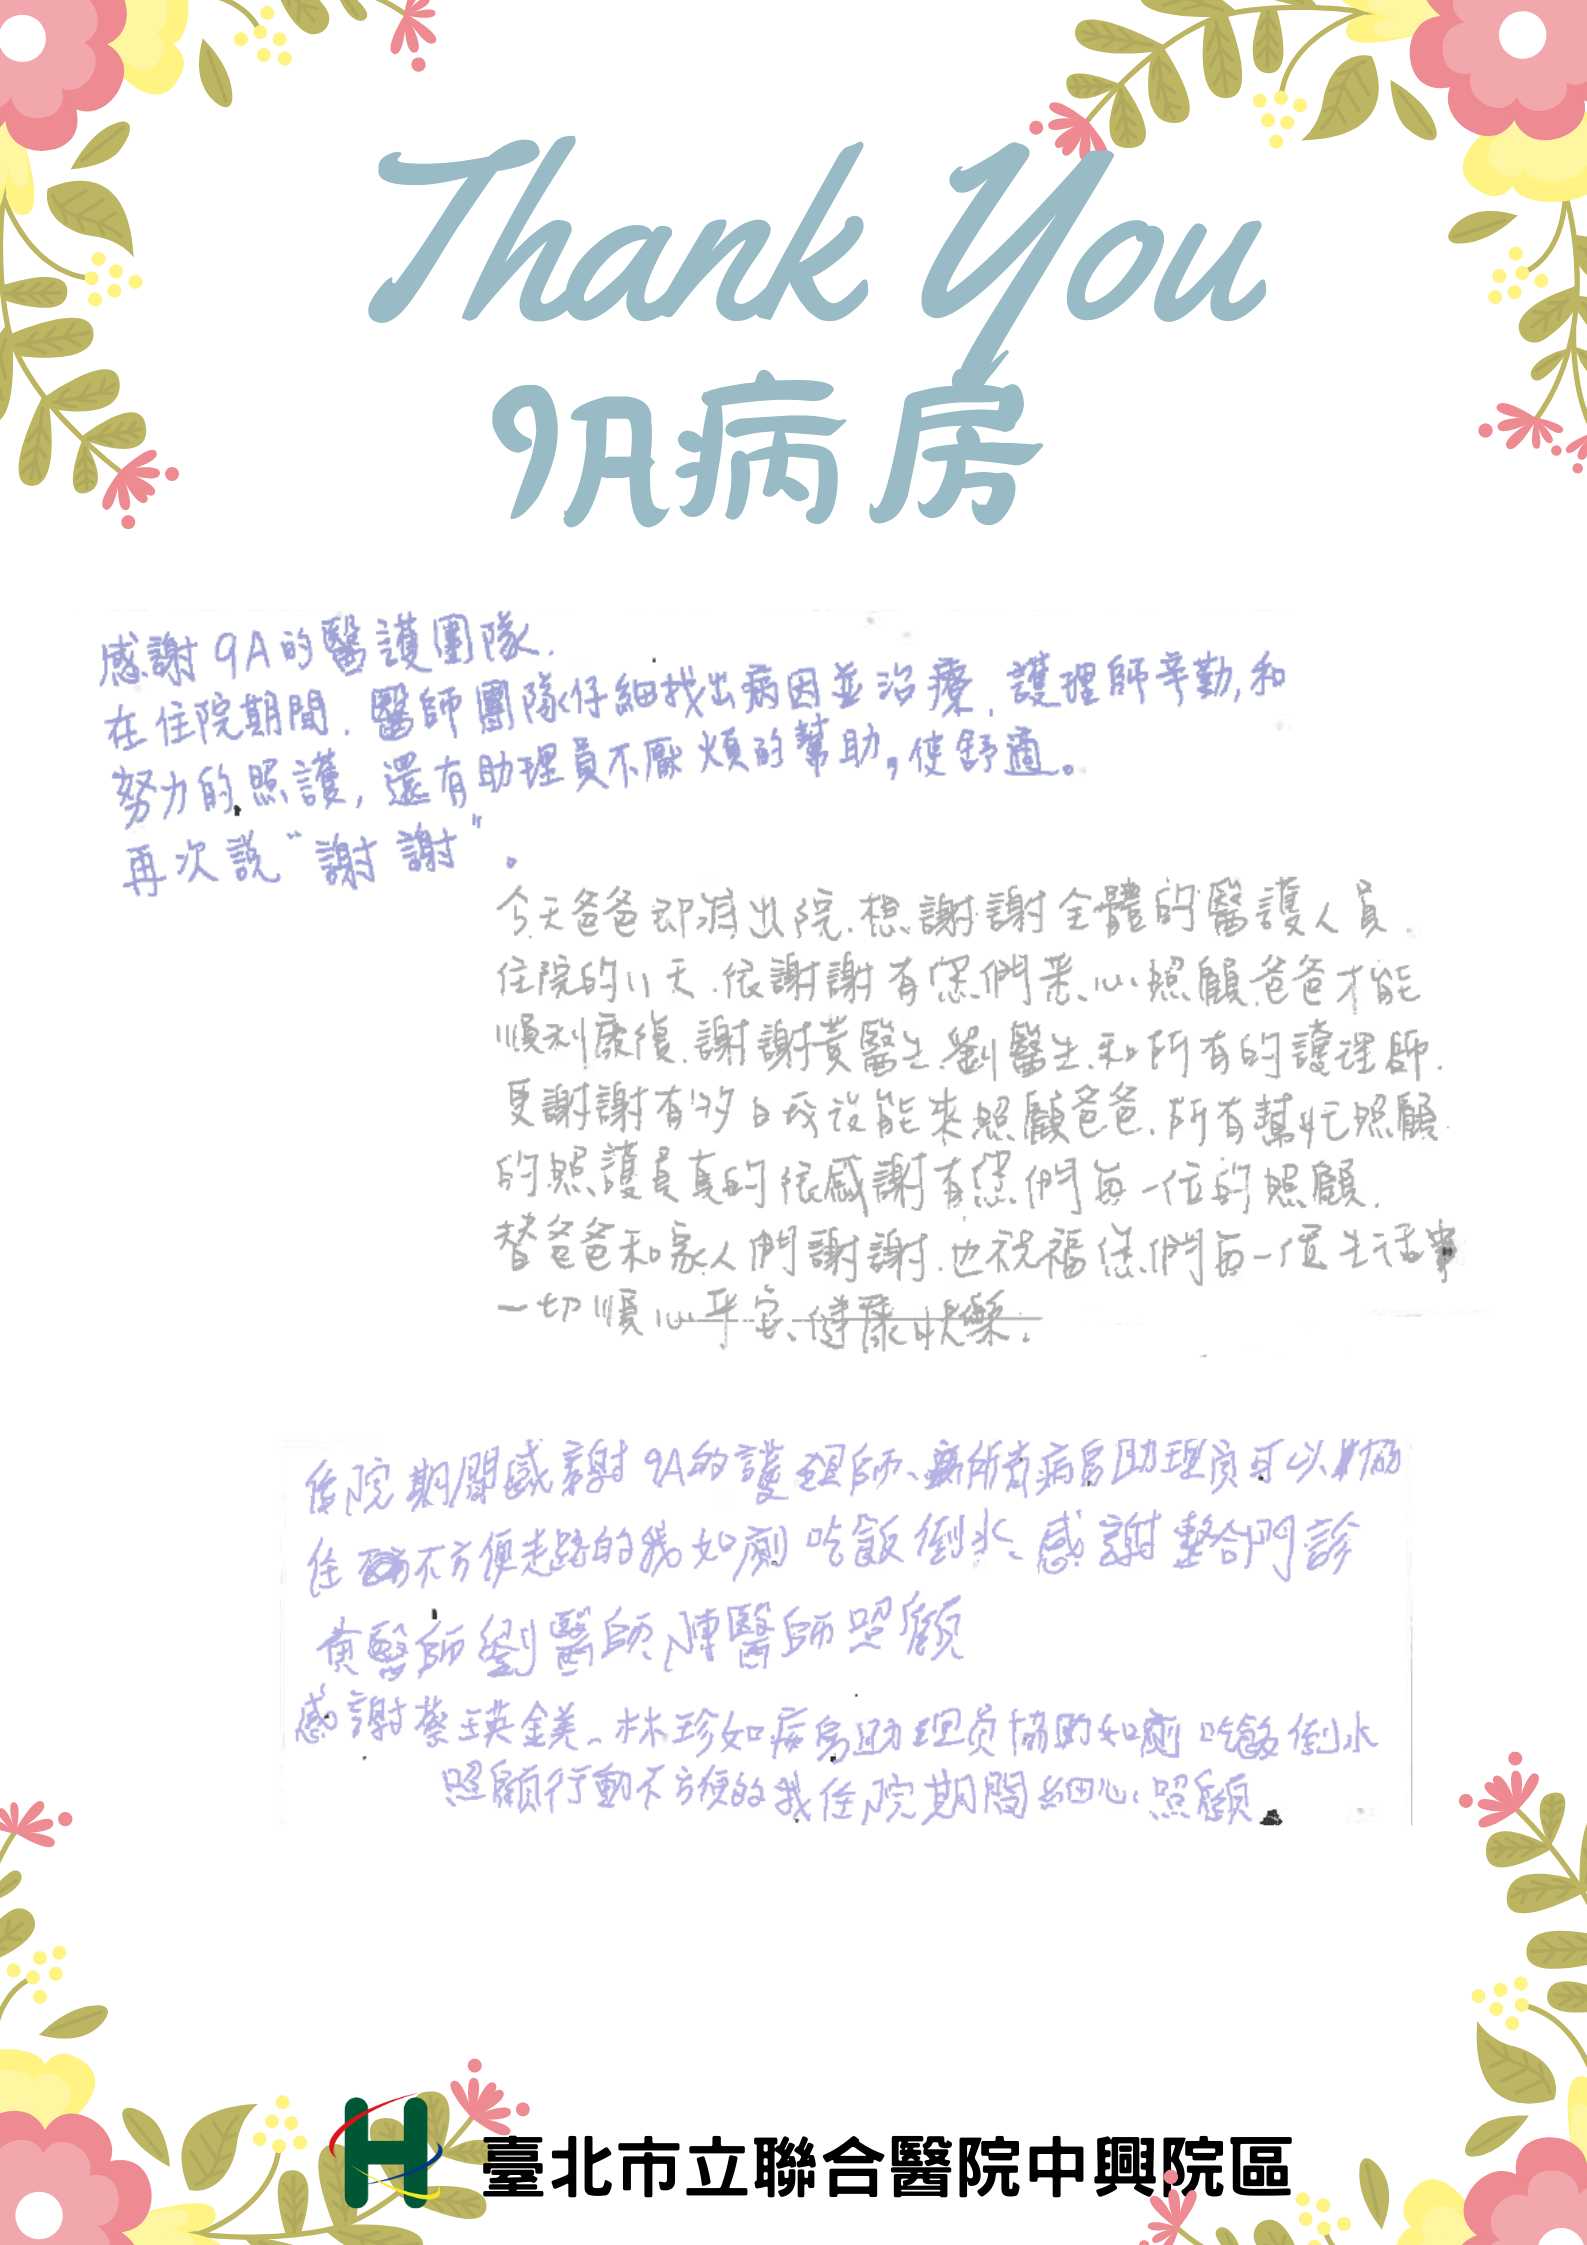 Thank You
9A病房
感謝9A的醫護團隊.
在住院期間.醫師團隊仔細找出病因並治療.護理師辛勤,和
努力的照護,還有助理員不厭煩的幫助,使舒適。
再次說"謝謝"。
今天爸爸即將出院.想謝謝全體的醫護人員.
住院的11天.很謝謝有您們悉心照顧.爸爸才能
順利康復.謝謝黃醫生.劉醫生.和所有的護理師.
更謝謝有 日我沒能來照顧爸爸.所有幫忙照顧
的照護員真的很感謝有您們每一位的照顧.
替爸爸和家人們謝謝.也祝福您們每一位生活
一切順心平安、健康快樂.
住院期間感謝9A的護理師、所有病房助理員可以協
住 不方便走路的我如廁吃飯倒水、感謝整合門診
黃醫師劉醫師、陳醫師照顧
感謝蔡瑛鎂、林珍如病房助理員協助如廁吃飯倒水
照顧行動不方便的我住院期間細心照顧
臺北市立聯合醫院中興院區